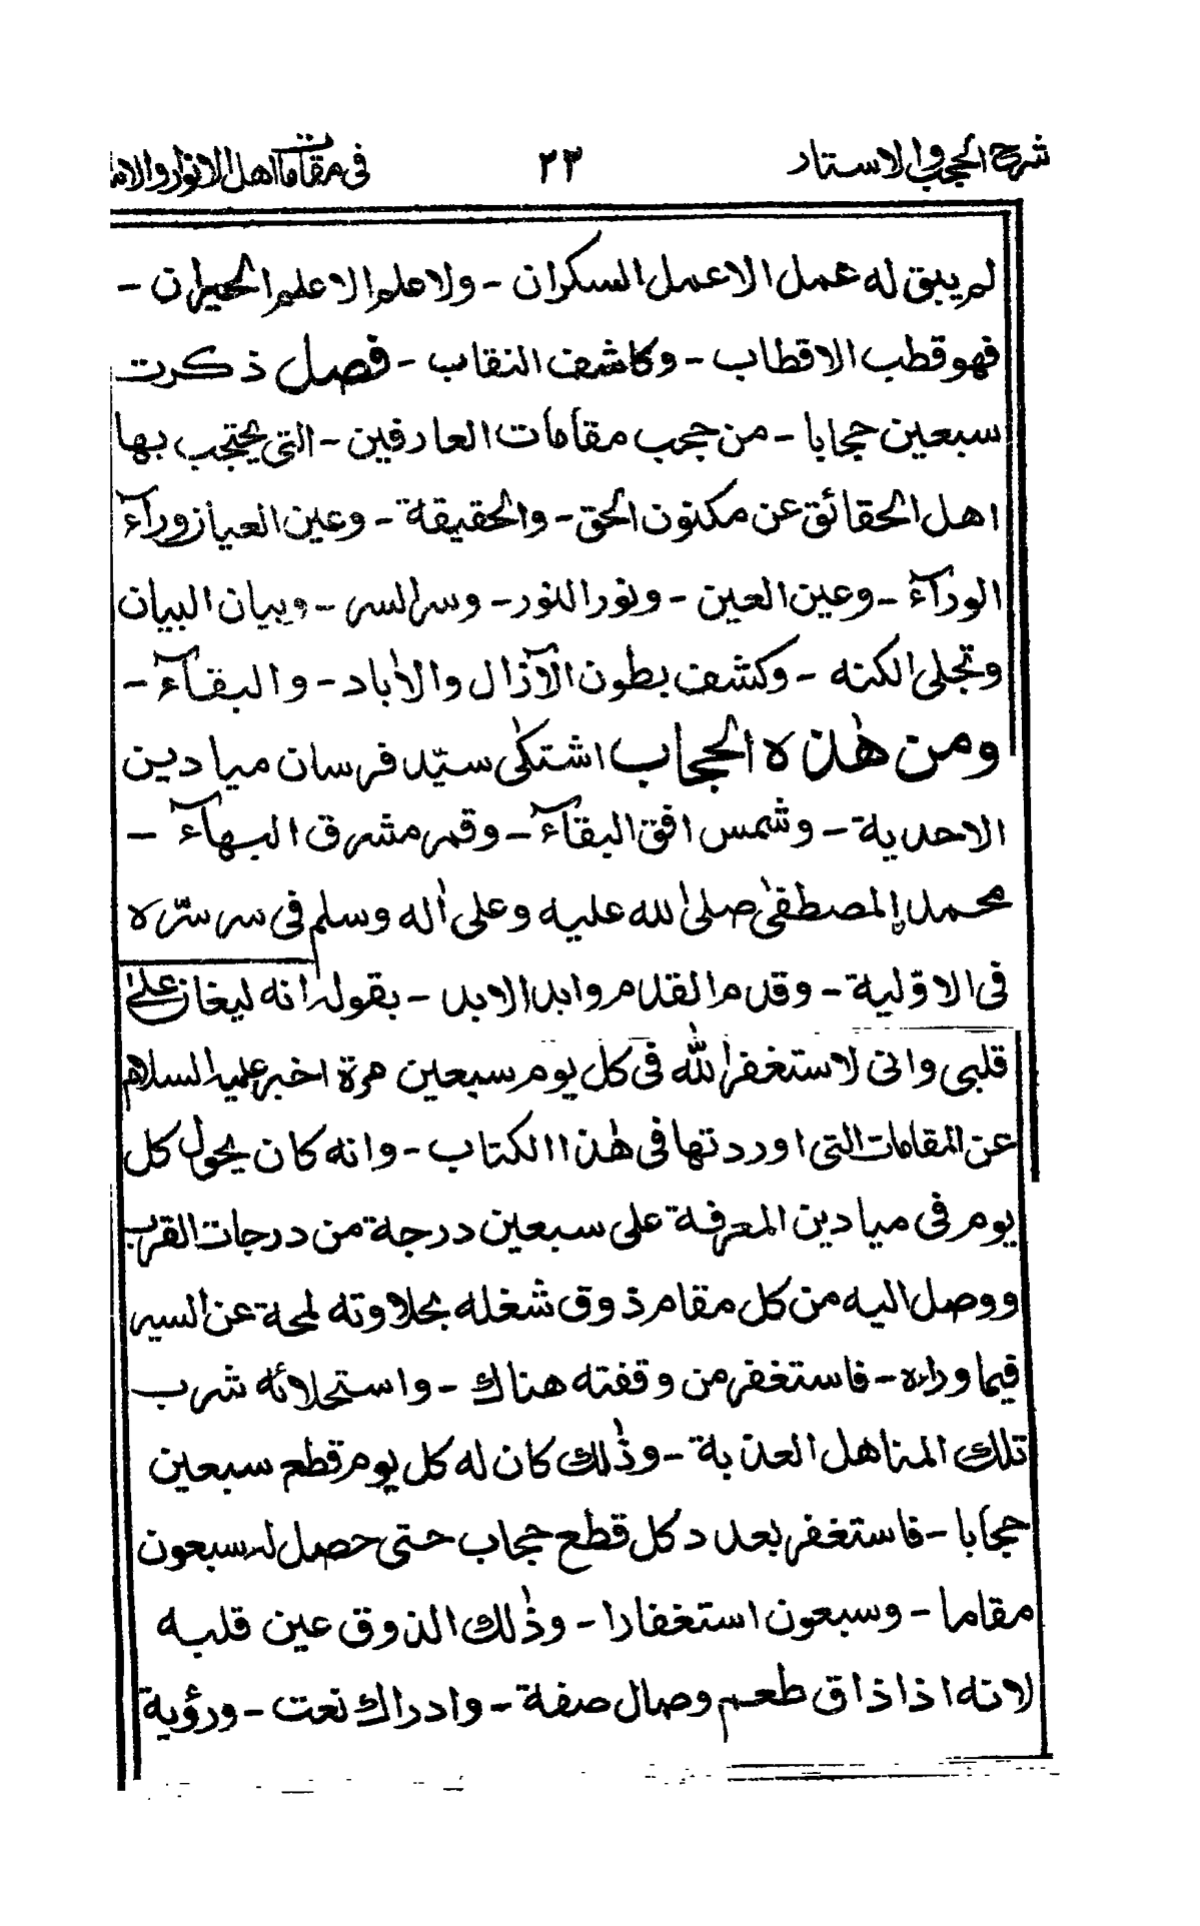 شرح الحجب والاستار ٢٣ فى مقامات اهل الانوار والا
لم يبق له عمل الا عمل السكران - ولا علم الا علم الحيران -
فهو قطب الاقطاب - وكاشف النقاب - فصل ذكرت
سبعين حجابا - من حجب مقامات العارفين - التى يحتجب بها
اهل الحقائق عن مكنون الحق - والحقيقة - وعين العيان وورآء
الورآء - وعين العين - ونور النور - وسر السر - وبيان البيان
وتجلى الكنه - وكشف بطون الآزال والاٰباد - والبقآء -
ومن هٰذه الحجاب اشتكٰى سيّد فرسان ميادين
الاحدية - وشمس افق البقآء - وقمر مشرق البهآء -
محمد المصطفٰى صلى الله عليه وعلى اٰله وسلم فى سر سرّه
فى الاوّلية - وقدم القدم وابد الابد - بقوله انه ليغان علٰى
قلبى وانى لاستغفر الله فى كل يوم سبعين مرة اخبر عليه السلام
عن المقامات التى اوردتها فى هٰذا الكتاب - وانه كان يحول كل
يوم فى ميادين المعرفة على سبعين درجة من درجات القرب
ووصل اليه من كل مقام ذوق شغله بحلاوته لمحة عن السير
فيما وراءه - فاستغفر من وقفته هناك - واستحلائه شرب
تلك المناهل العذبة - وذٰلك كان له كل يوم قطع سبعين
حجابا - فاستغفر بعد د كل قطع حجاب حتى حصل له سبعون
مقاما - وسبعون استغفارا - وذٰلك الذوق عين قلبه
لانه اذا ذاق طعم وصال صفة - وادراك نعت - ورؤية